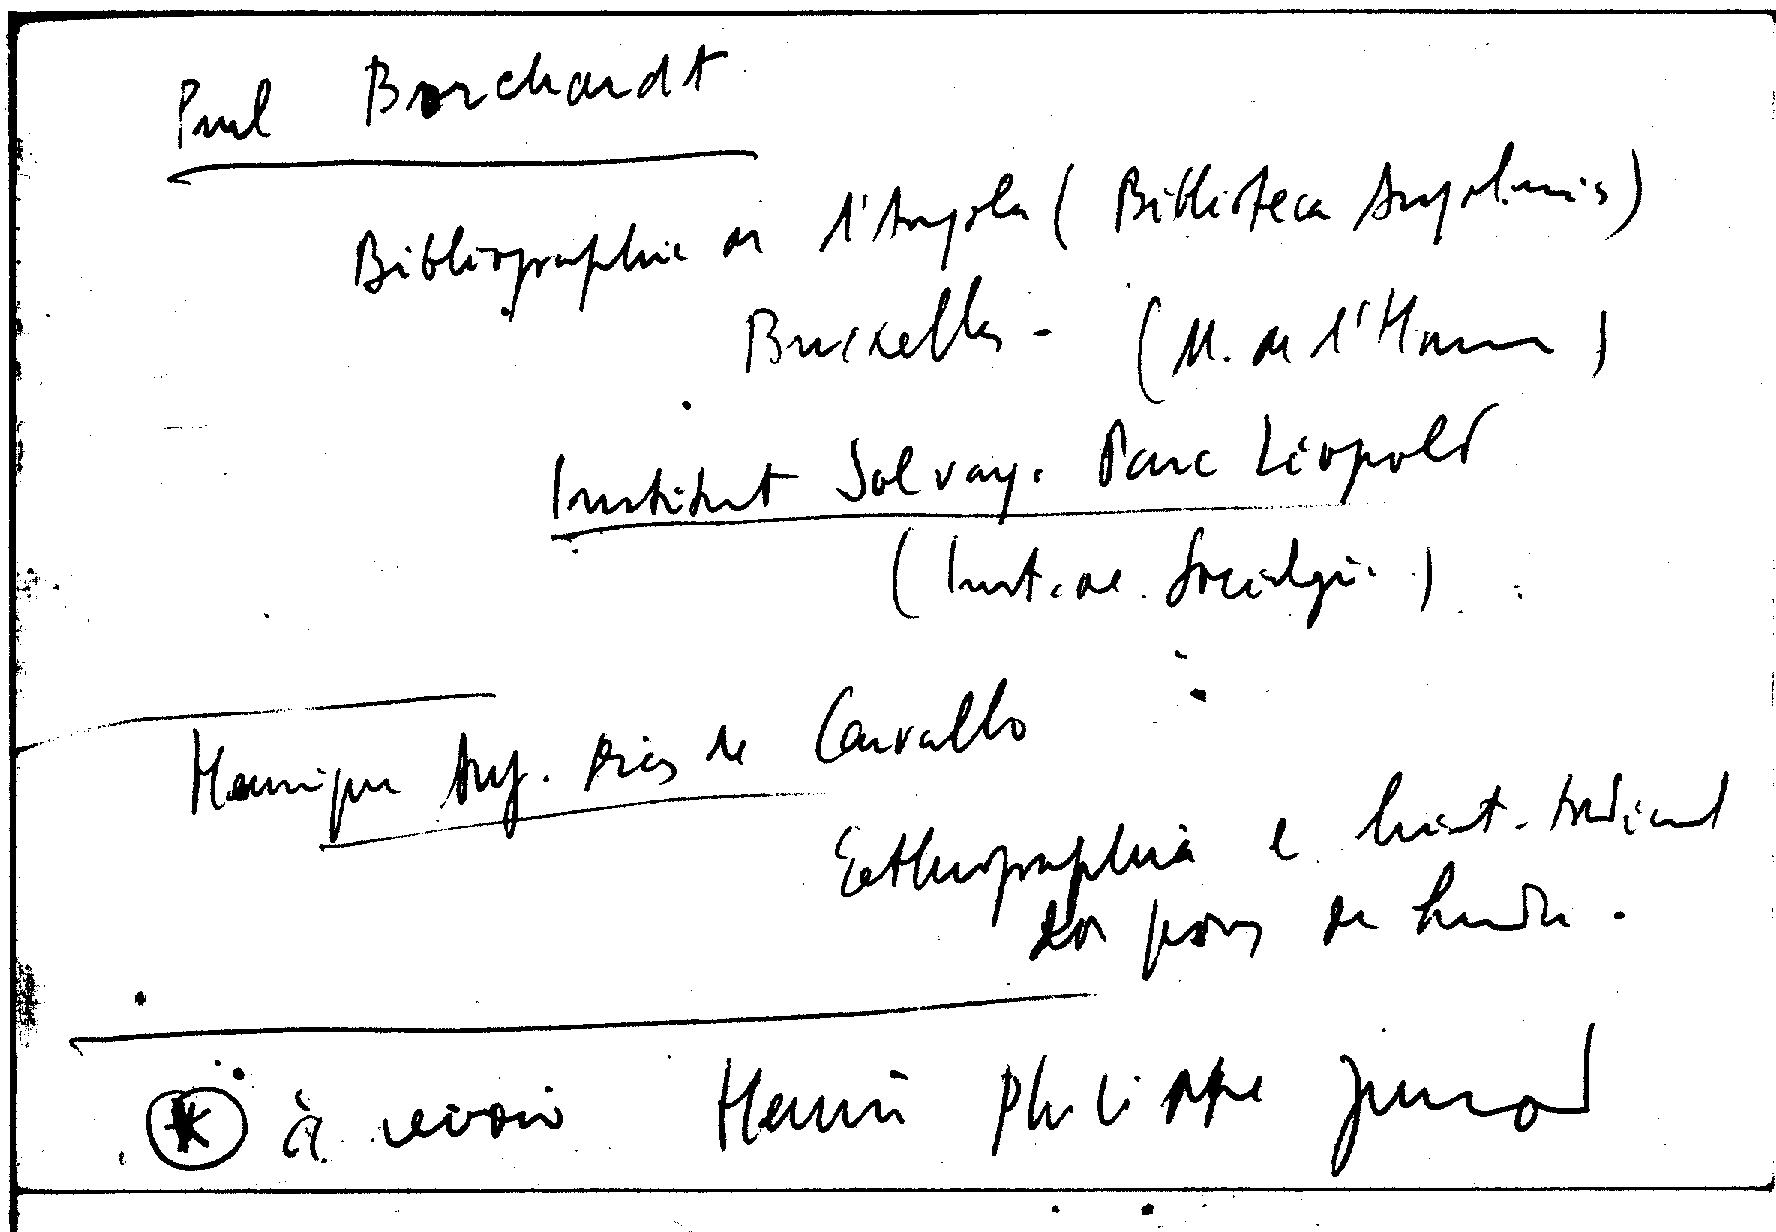 Paul Borchardt
Bibliographie de l'Angola (Biblioteca Angolensis)
Bruxelles - (M. de l'Homme)
Institut Solvay. Parc Léopold
(Inst. de Sociologie.)
Henrique Aug. Dias de Carvalho
Ethnographia e hist. tradicional
dos povos da Lunda.
* à revoir Henri Philippe Junod